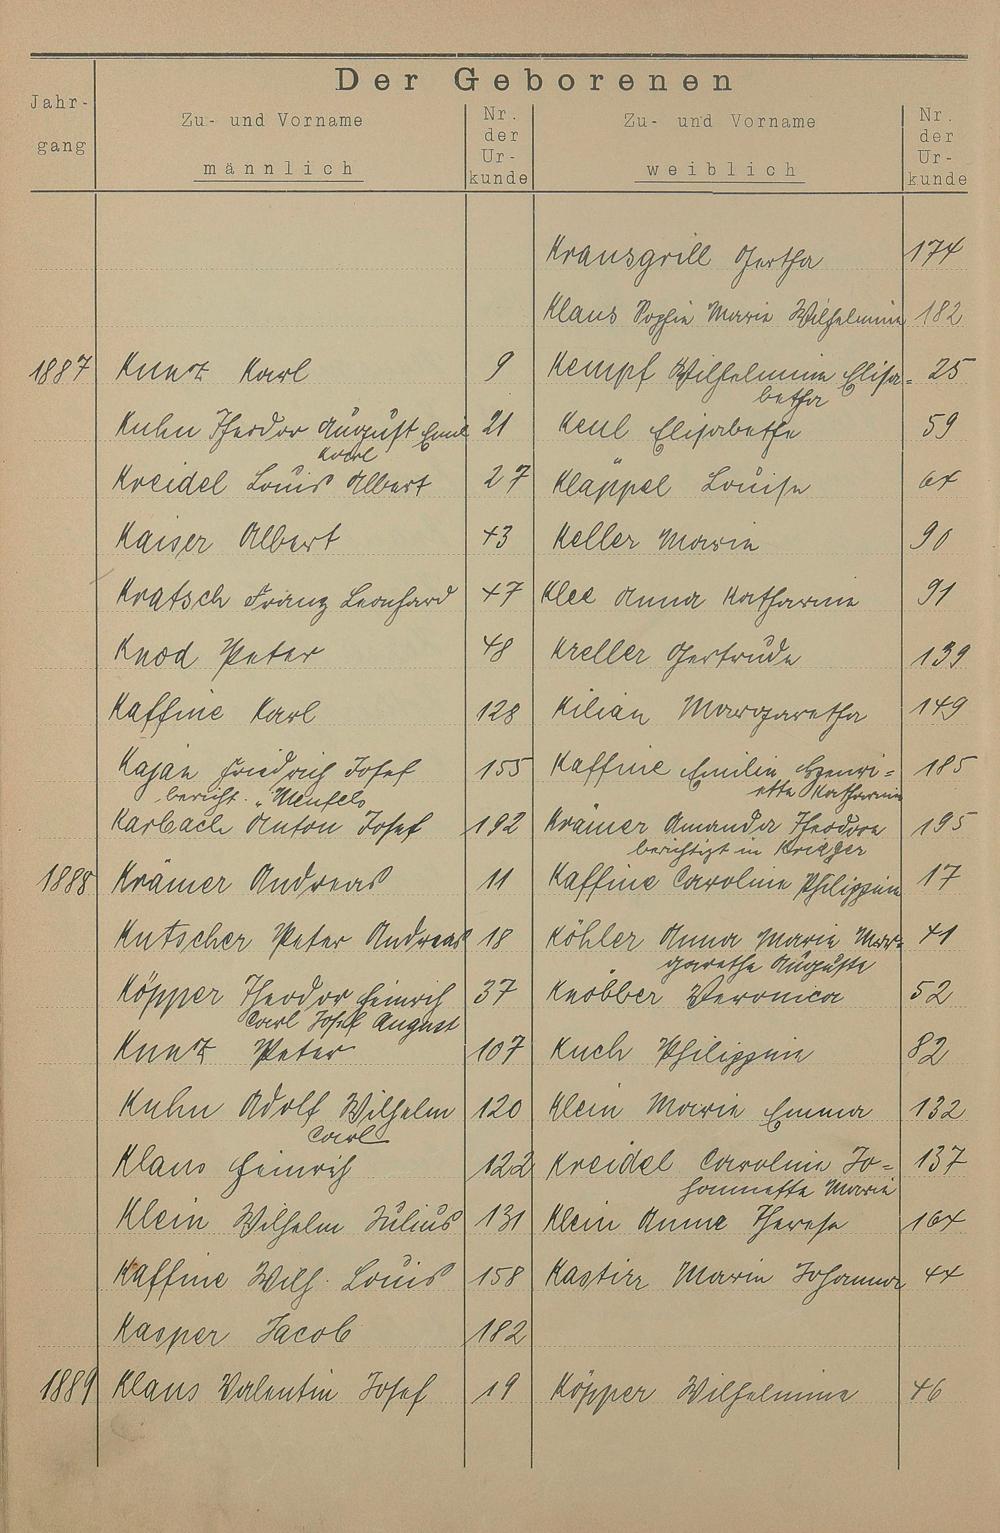 Der Geborenen
Jahr-
gang
Zu- und Vorname
männlich
Nr.
der
Ur-
kunde
Zu- und Vorname
weiblich
Nr.
der
Ur-
kunde
Krausgrill Hertha 174
Klaus Sophie Marie Wilhelmine 182
1887 Kunz Karl 9 Kempf Wilhelmine Elisa- 25
betha
Kuhn Theodor August Emil 21 Keul Elisabethe 59
Karl
Kreidel Louis Albert 27 Kläppel Louise 64
Kaiser Albert 43 Keller Marie 90
Kratsch Franz Leonhard 47 Klee Anna Katharine 91
Knod Peter 48 Kreller Gertrude 139
Kaffine Karl 128 Kilian Margaretha 149
Kajan Friedrich Josef 155 Kaffine Emilie Henri- 185
bericht. "Menfels ette Katharine
Karbach Anton Josef 192 Krämer Amanda Theodore 195
berichtigt in Krieger
1888 Krämer Andreas 11 Kaffine Caroline Philippine 17
Kutscher Peter Andreas 18 Köhler Anna Marie Mar- 41
garethe Auguste
Köpper Theodor Heinrich 37 Knöbber Veronica 52
Carl Josef August
Kunz Peter 107 Kuch Philippine 82
Kuhn Adolf Wilhelm 120 Klein Marie Emma 132
Carl
Klaus Heinrich 122 Kreidel Caroline Jo- 137
hannette Marie
Klein Wilhelm Julius 131 Klein Anna Therese 164
Kaffine Wilh. Louis 158 Marie Johanna 44
Kasper Jacob 182
1889 Klaus Valentin Josef 19 Köpper Wilhelmine 46